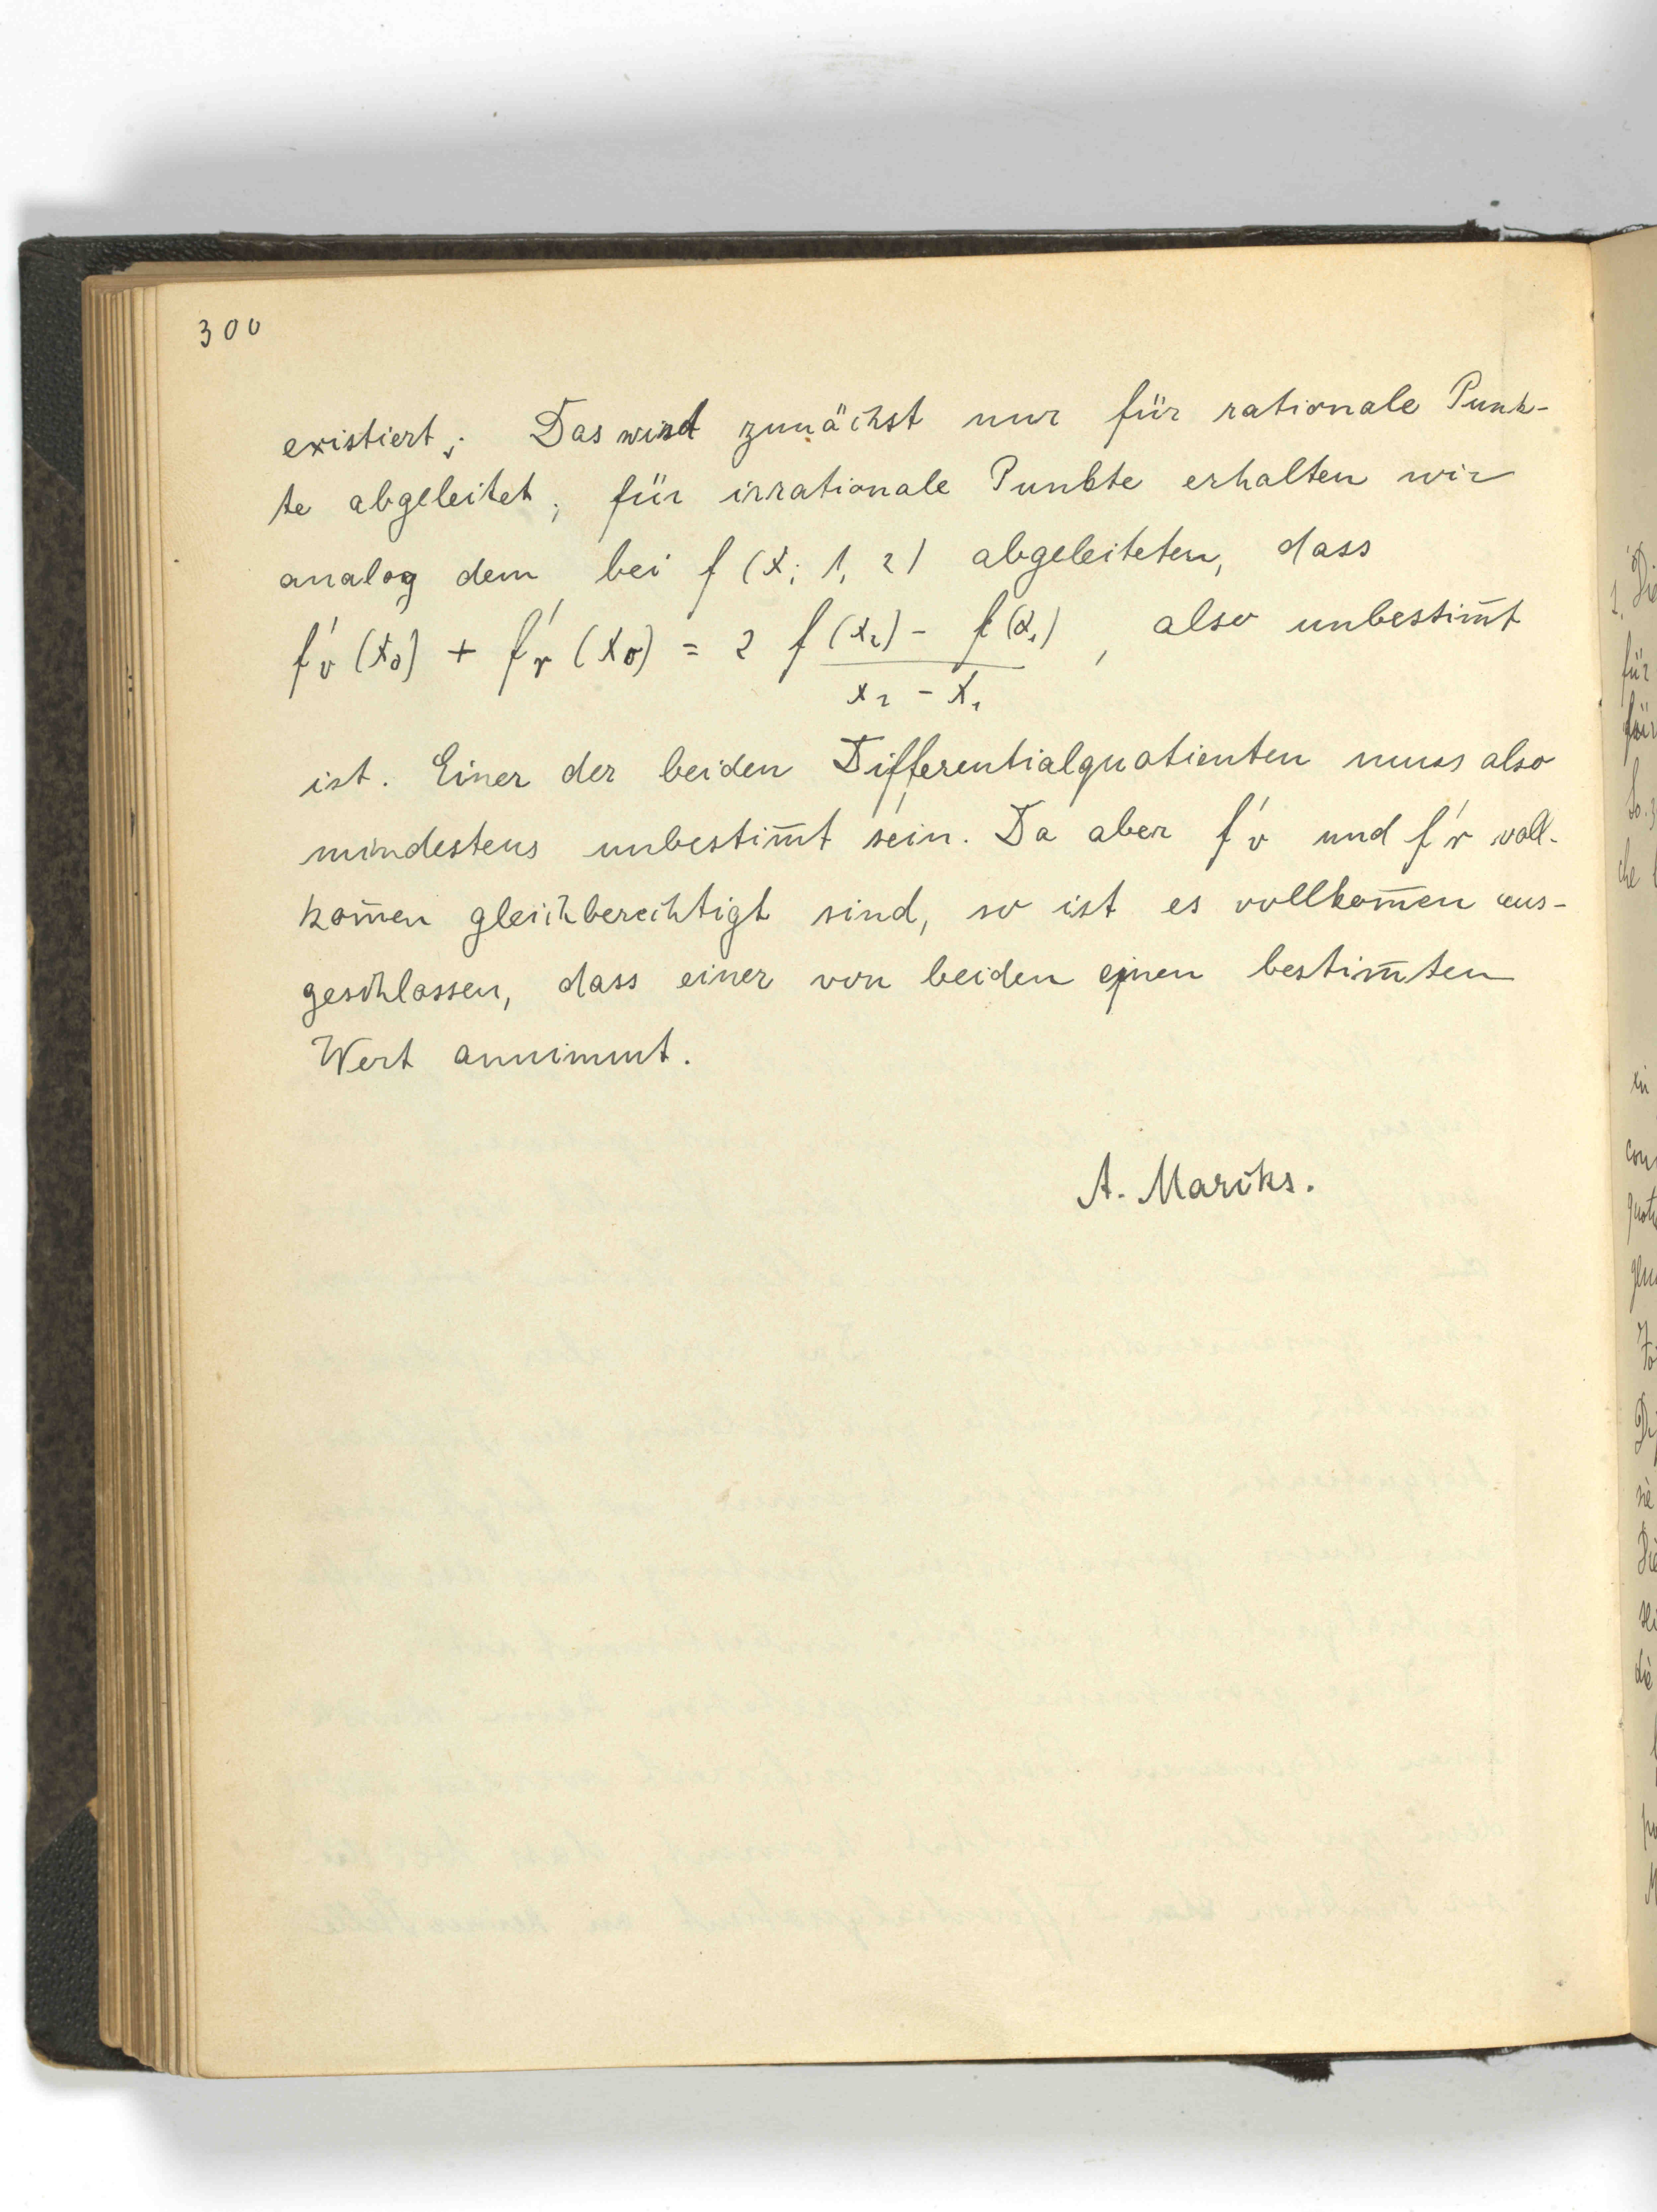 300
existiert; Das wird zunächst nur für rationale Punk-
te abgeleitet; für irrationale Punkte erhalten wir
analog dem bei f (x; 1, 2) abgeleiteten, dass
f'v (x0) + f'r (x0) = 2 f(x2) - f(x1) , also unbestim̅t
x2 - x1
ist. Einer der beiden Differentialquotienten muss also
mindestens unbestim̅t sein. Da aber f'v und f'r voll-
kom̅en gleichberechtigt sind, so ist es vollkom̅en aus-
geschlossen, dass einer von beiden einen bestim̅ten
Wert annimmt.
A. Marcks.